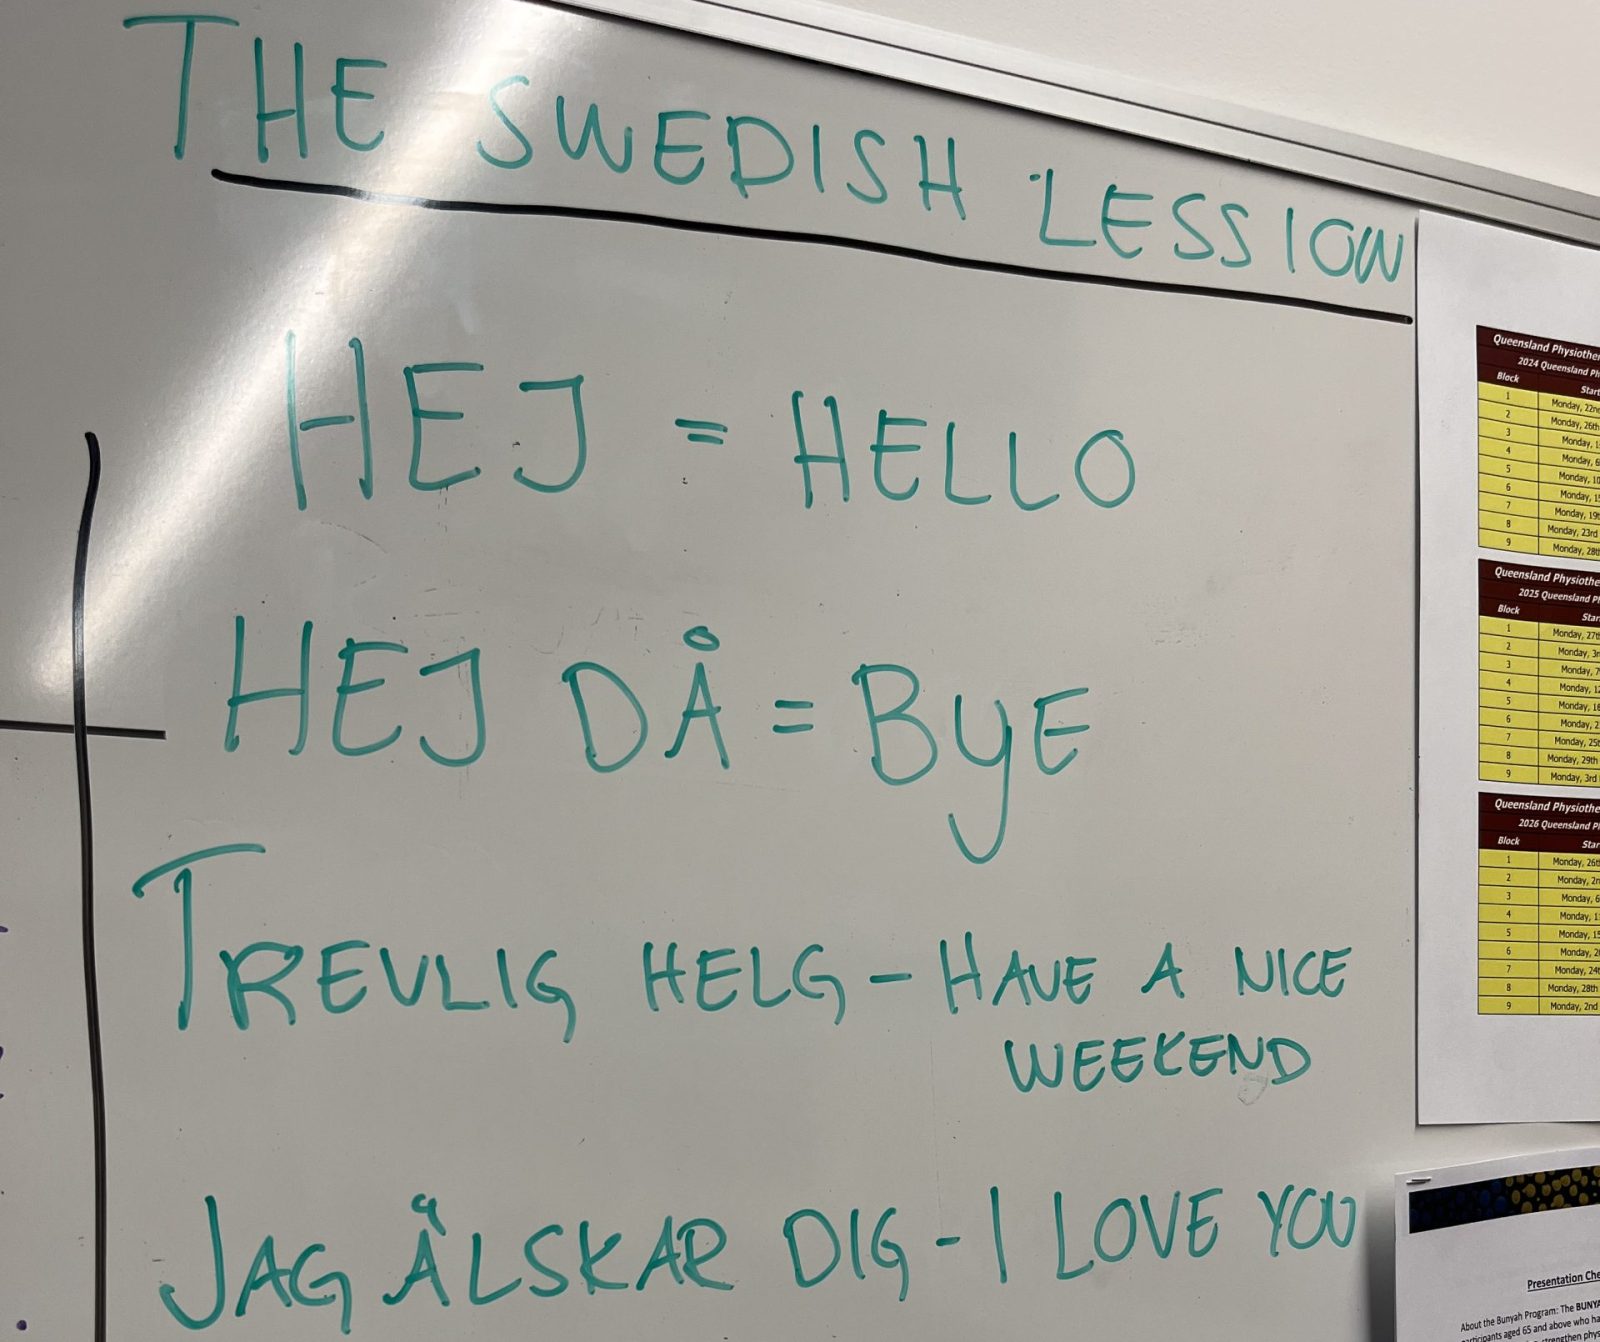 THE SWEDISH LESSION
HEJ = HELLO
HEJ DÅ = BYE
TREVLIG HELG - HAVE A NICE
WEEKEND
JAG ÄLSKAR DIG - I LOVE YOU
Queensland
2024 Queensland
Block
1 Monday,
2 Monday, 26th
3 Monday,
4 Monday,
5 Monday,
6 Monday,
7 Monday,
8 Monday, 23rd
9 Monday,
Queensland
2025 Queensland
Block
1 Monday,
2 Monday,
3 Monday,
4 Monday,
5 Monday,
6 Monday,
7 Monday,
8 Monday, 29th
9 Monday, 3rd
Queensland
2026 Queensland
Block
1 Monday,
2 Monday,
3 Monday,
4 Monday,
5 Monday,
6 Monday,
7 Monday,
8 Monday, 28th
9 Monday, 2nd
Presentation
About the Bunyah Program: The
participants aged 65 and above who
strengthen